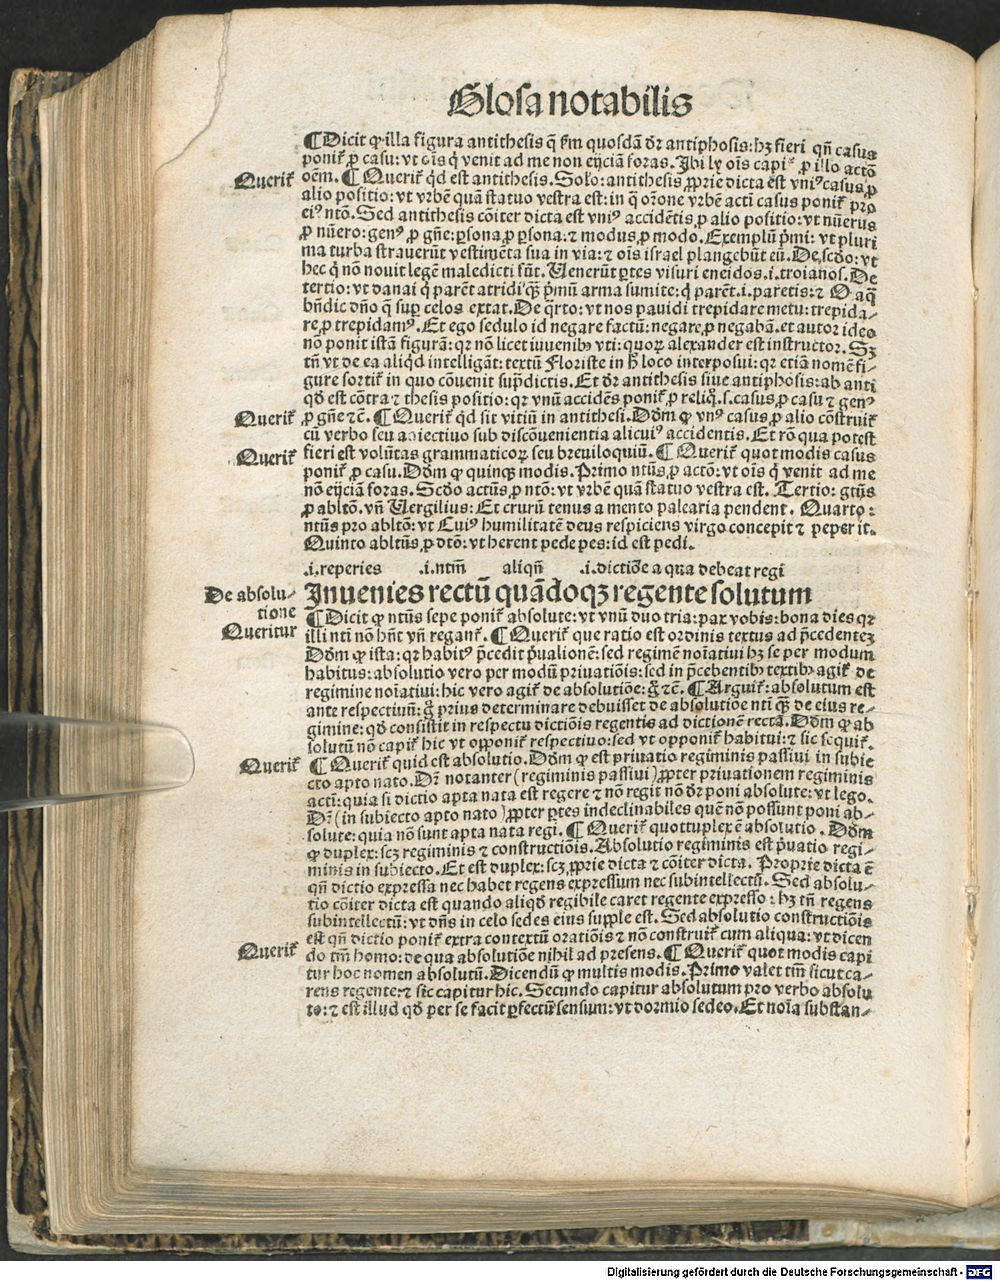 Glosa notabilis
¶ Dicit ꝙ illa figura antithesis q̄ ẜm quosdā dr̄ antiphosis: hꝫ fieri qn̄ casus
ponit᷑ ꝓ casu: vt oīs q̇ venit ad me non eijciā foras. Ibi ly oīs capit᷑ ꝓ illo actō
Querit᷑ oēm. ¶ Querit᷑ qd̓ est antithesis. Solo: antithesis ꝓprie dicta est vniꝰ casus ꝓ
alio positio: vt vrbē quā statuo vestra est: in q̄ orōne vrbē acti casus ponit᷑ pro
eiꝰ ntō. Sed antithesis cōiter dicta est vniꝰ accidētis ꝓ alio positio: vt nūerus
ꝓ nūero: genꝰ ꝓ gn̄e: ꝑsona ꝓ ꝑsona: ⁊ modus ꝓ modo. Exemplū p̓mi: vt pluri
ma turba strauerūt vestimēta sua in via: ⁊ oīs israel plangebūt eū. De scd̓o: vt
hec q̇ nō nouit legē maledicti sūt. Uenerūt ꝑtes visuri eneidos .i. troianos. De
tertio: vt danai q̇ parēt atridiꝰ qꝫ p̓mū arma sumite: q̇ parēt .i. paretis: ⁊ O aq̄
bn̄dic dn̄o q̄ suꝑ celos extat. De q̓rto: vt nos pauidi trepidare metu: trepida⸗
re ꝓ trepidamꝰ. Et ego sedulo id negare factū: negare ꝓ negabā. et autor ideo
nō ponit istā figurā: qꝛ nō licet iuuenibꝰ vti: quoꝝ alexander est instructor. Sꝫ
tn̄ vt de ea aliqd̓ intelligāt: textū Floriste in h̓ loco interposui: qꝛ etiā nomē fi⸗
gure sortit᷑ in quo cōuenit sup̄dictis. Et dr̄ antithesis siue antiphosis: ab anti
qd̓ est cōtra ⁊ thesis positio: qꝛ vnū accidēs ponit᷑ ꝓ reliq̊ .s. casus ꝓ casu ⁊ genꝰ
Querit᷑ ꝓ gn̄e ⁊c̄. ¶ Querit᷑ qd̓ sit vitiū in antithesi. Dd̓m ꝙ vnꝰ casus ꝓ alio cōstruit᷑
cū verbo seu adiectiuo sub discōuenientia alicuiꝰ accidentis. Et rō qua potest
Querit᷑ fieri est volūtas grammaticoꝝ seu breuiloquiū. ¶ Querit᷑ quot modis casus
ponit᷑ ꝓ casu. Dd̓m ꝙ quinqꝫ modis. Primo ntūs ꝓ actō: vt oīs q̇ venit ad me
nō eijciā foras. Scd̓o actūs ꝓ ntō: vt vrbē quā statuo vestra est. Tertio: gtūs
ꝓ abltō. vn̄ Uergilius: Et crurū tenus a mento palearia pendent. Quarto:
ntūs pro abltō: vt Cuiꝰ humilitatē deus respiciens virgo concepit ⁊ peperit.
Quinto abltūs ꝓ dtō: vt herent pede pes: id est pedi.
.i. reperies .i. ntm̄ aliqn̄ .i. dictiōe a qua debeat regi
De absolu⸗
tione
Inuenies rectū quādoqꝫ regente solutum
¶ Dicit ꝙ ntūs sepe ponit᷑ absolute: vt vnū duo tria: pax vobis: bona dies qꝛ
Queritur illi nti nō hn̄t vn̄ regant᷑. ¶ Querit᷑ que ratio est ordinis textus ad p̄cedentez
Dd̓m ꝙ ista: qꝛ habitꝰ p̄cedit p̓uationē: sed regimē noīatiui hꝫ se per modum
habitus: absolutio vero per modū priuatiōis: sed in p̄cebentibꝰ textibꝰ agit᷑ de
regimine noīatiui: hic vero agit᷑ de absolutiōe: g̊ ⁊c̄. ¶ Arguit᷑: absolutum est
ante respectiuū: g̊ prius determinare debuisset de absolutiōe nti qꝫ̄ de eius re⸗
gimine: qd̓ consistit in respectu dictiōis regentis ad dictionē rectā. Dd̓m ꝙ ab
solutū nō capit᷑ hic vt opponit᷑ respectiuo: sed vt opponit᷑ habitui: ⁊ sic sequit᷑.
Querit᷑ ¶ Querit᷑ quid est absolutio. Dd̓m ꝙ est priuatio regiminis passiui in subie
cto apto nato. Dr̄ notanter (regiminis passiui) ꝓpter priuationem regiminis
acti: quia si dictio apta nata est regere ⁊ nō regit nō dr̄ poni absolute: vt lego.
Dr̄ (in subiecto apto nato) ꝓpter ꝑtes indeclinabiles que nō possunt poni ab⸗
solute: quia nō sunt apta nata regi. ¶ Querit᷑ quottuplex ē absolutio. Dd̓m
ꝙ duplex: scꝫ regiminis ⁊ constructiōis. Absolutio regiminis est p̓uatio regi⸗
minis in subiecto. Et est duplex: scꝫ ꝓprie dicta ⁊ cōiter dicta. Proprie dicta ē
qn̄ dictio expressa nec habet regens expressum nec subintellectū. Sed absolu⸗
tio cōiter dicta est quando aliqd̓ regibile caret regente expresso: hꝫ tn̄ regens
subintellectū: vt dn̄s in celo sedes eius supple est. Sed absolutio constructiōis
Querit᷑ est qn̄ dictio ponit᷑ extra contextū oratiōis ⁊ nō construit᷑ cum aliqua: vt dicen
do tm̄ homo: de qua absolutiōe nihil ad presens. ¶ Querit᷑ quot modis capi
tur hoc nomen absolutū. Dicendū ꝙ multis modis. Primo valet tm̄ sicut ca⸗
rens regente: ⁊ sic capitur hic. Secundo capitur absolutum pro verbo absolu
to: ⁊ est illud qd̓ per se facit ꝑfectū sensum: vt dormio sedeo. Et noīa substan⸗
Digitalisierung gefördert durch die Deutsche Forschungsgemeinschaft - DFG